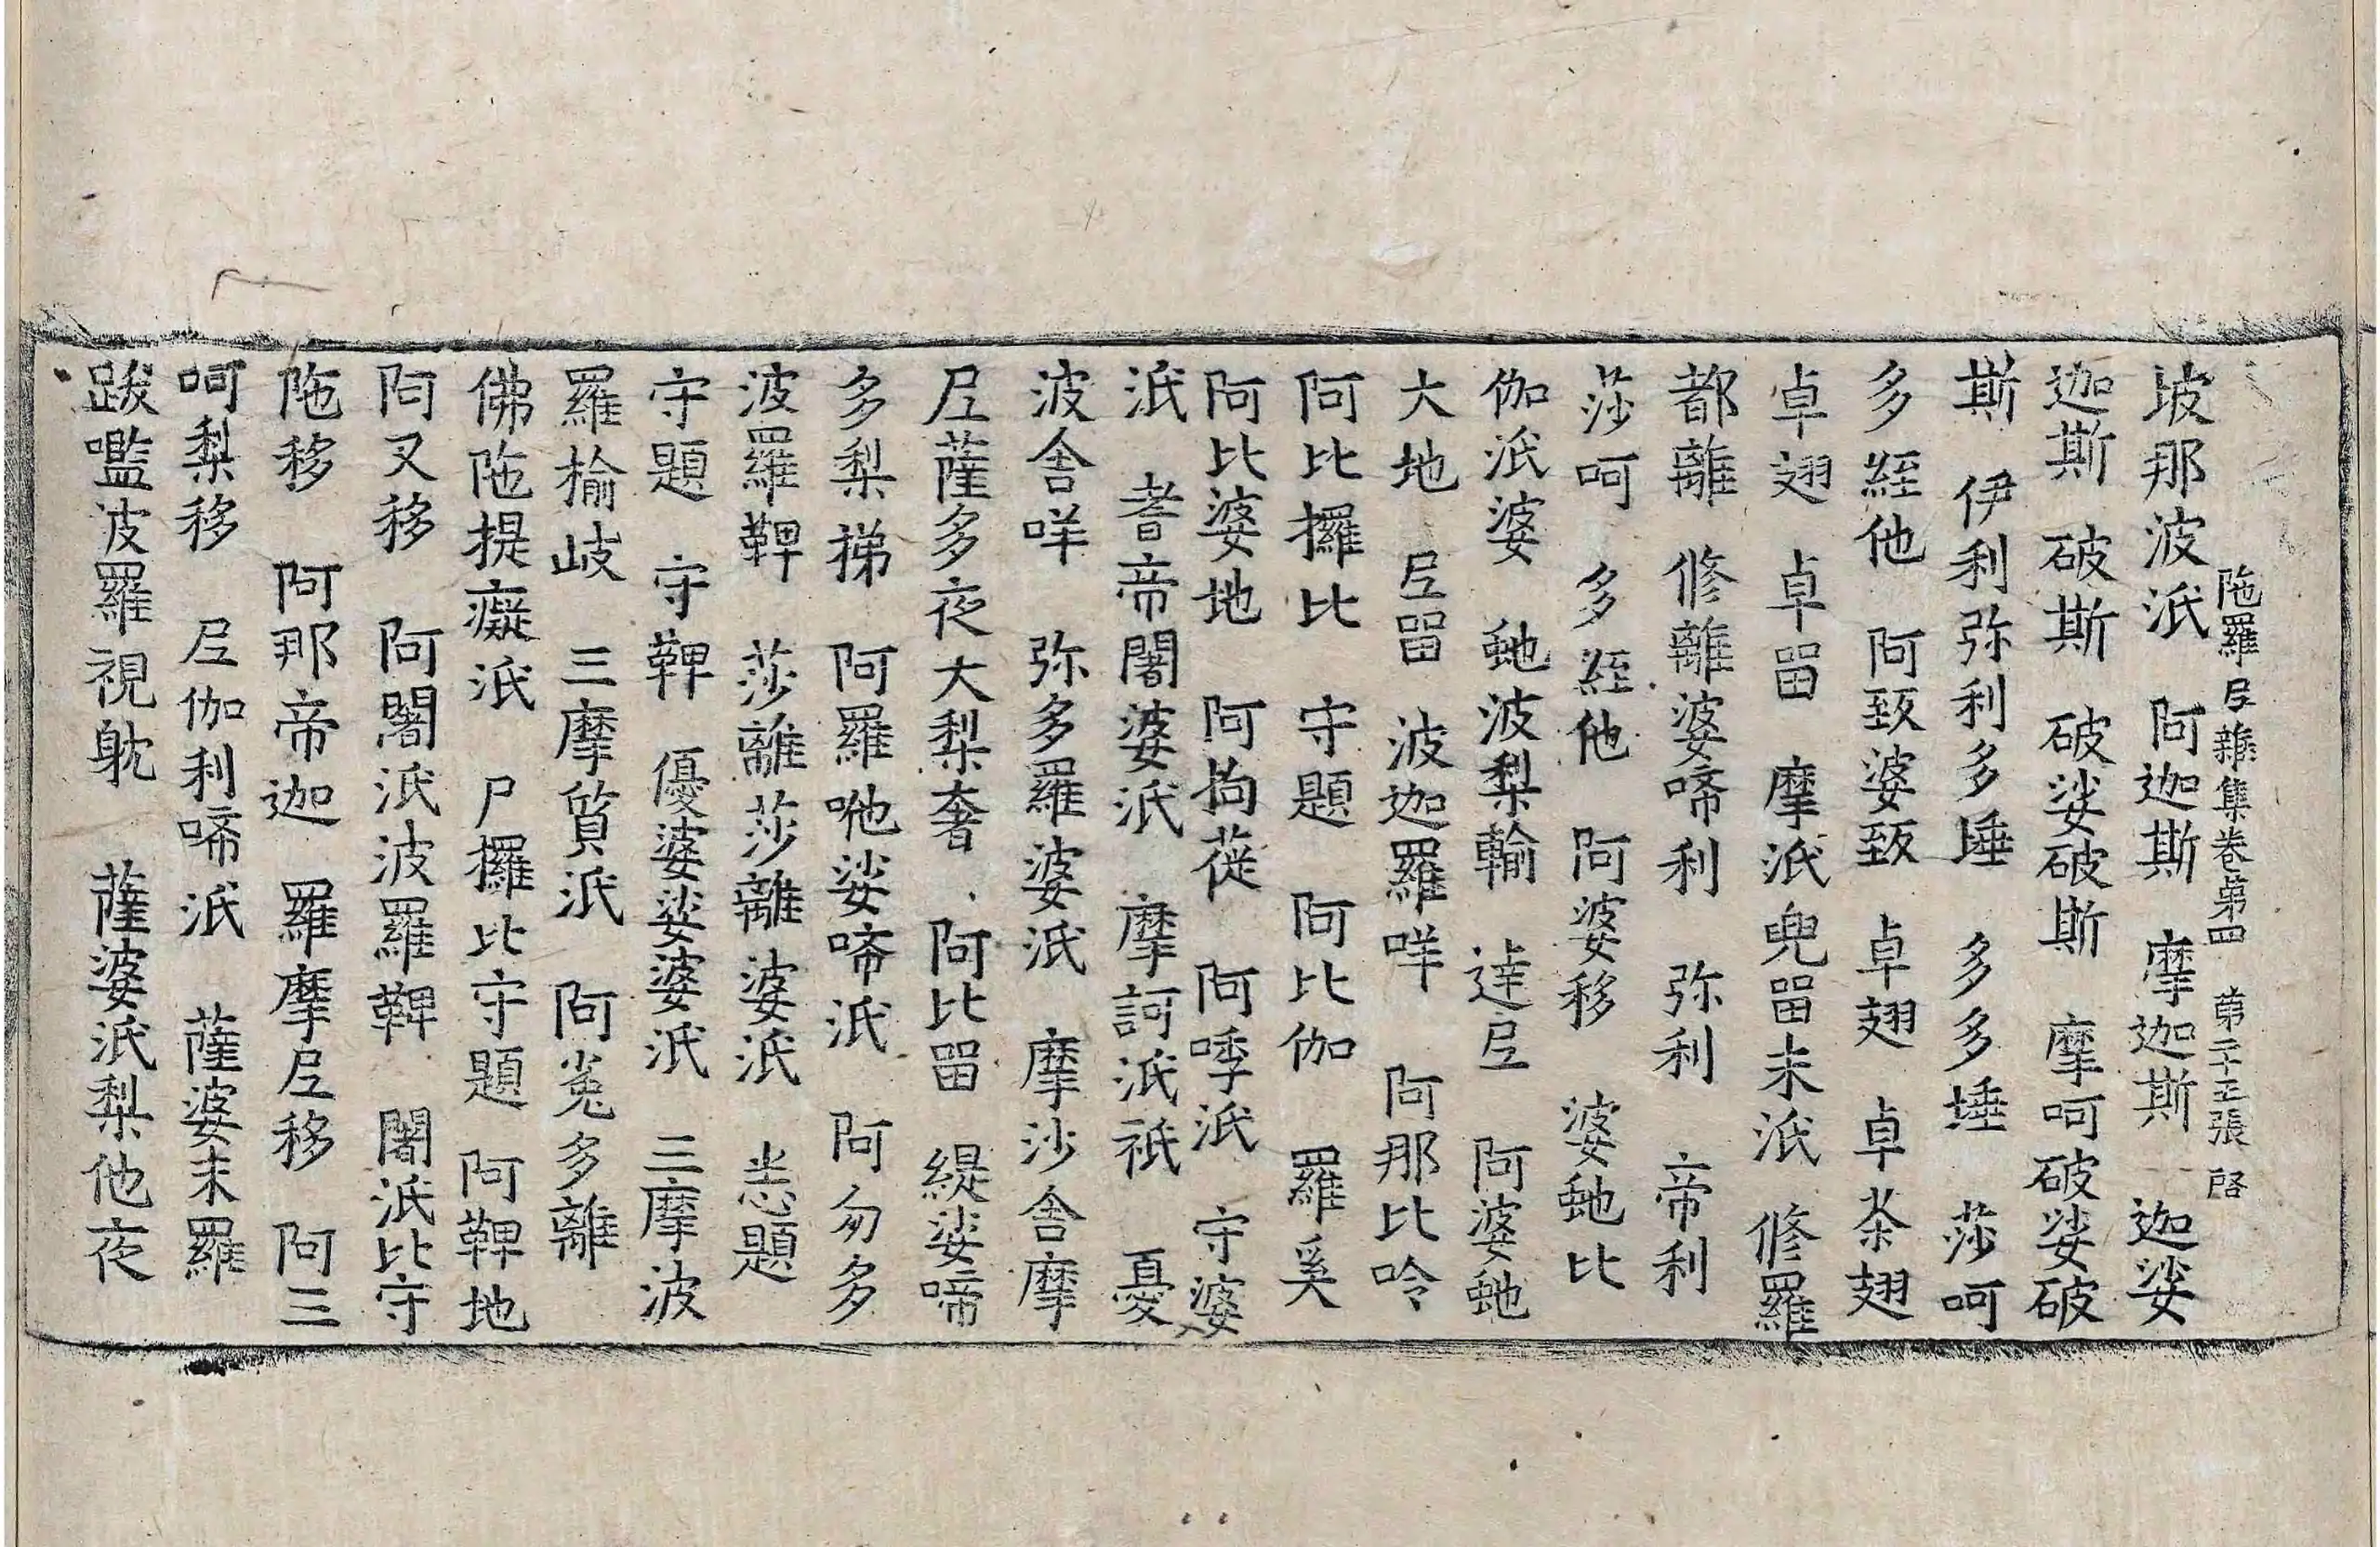 陁羅𡰱雜集卷第四 第二十五張 啓
坡那波泜 阿迦斯 摩迦斯 迦娑
迦斯 破斯 破娑破斯 摩呵破娑破
斯 伊利弥利多埵 多多埵 莎呵
多絰他 阿致婆致 卓翅 卓茶翅
卓翅 卓留 摩泜兜留未泜 修羅
都離 修離婆啼利 弥利 帝利
莎呵 多絰他 阿婆移 婆虵比
伽泜婆 虵波梨輸 達𡰱 阿婆虵
大地 𡰱留 波迦羅咩 阿那比呤
阿比攞比 守題 阿比伽 羅奚
阿比婆地 阿拘蓰 阿唩泜 守婆
泜 耆帝闍婆泜 摩訶泜祇 憂
波舍咩 弥多羅婆泜 摩沙舍摩
𡰱薩多夜大梨奢 阿比留 緹娑啼
多梨挮 阿羅吔娑啼泜 阿勿多
波羅鞞 莎離莎離婆泜 恙題
守題 守鞞 優婆娑婆泜 三摩波
羅榆岐 三摩質泜 阿菟多離
佛陁提癡泜 尸攞比守題 阿鞞地
阿叉移 阿闍泜波羅鞞 闍泜比守
陁移 阿那帝迦 羅摩𡰱移 阿三
呵梨移 𡰱伽利啼泜 薩婆末羅
跋嚂波羅視躭 薩婆泜梨他夜